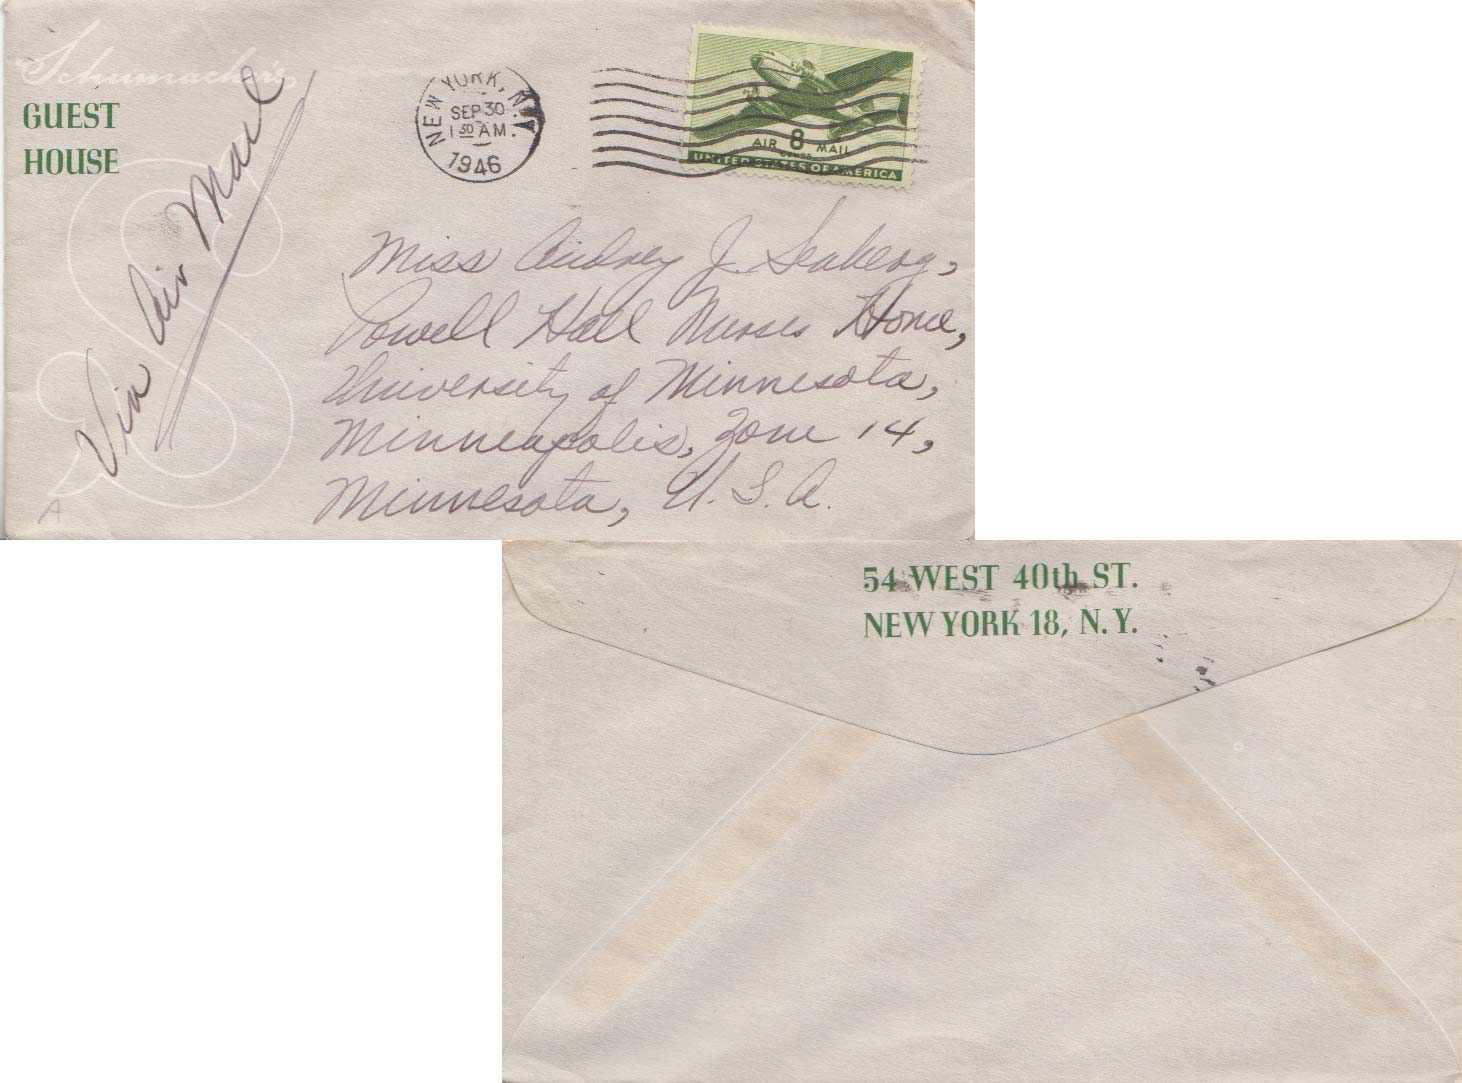 "Schumacher's
GUEST
HOUSE
Via Air Mail
NEW YORK, N.Y.
SEP 30
1 30 AM.
1946
8
CENTS
AIR MAIL
UNITED STATES OF AMERICA
Miss Audrey J. Seaberg,
Powell Hall Nurses Home,
University of Minnesota,
Minneapolis, Zone 14,
Minnesota, U.S.A.
A
54 WEST 40th ST.
NEW YORK 18, N.Y.